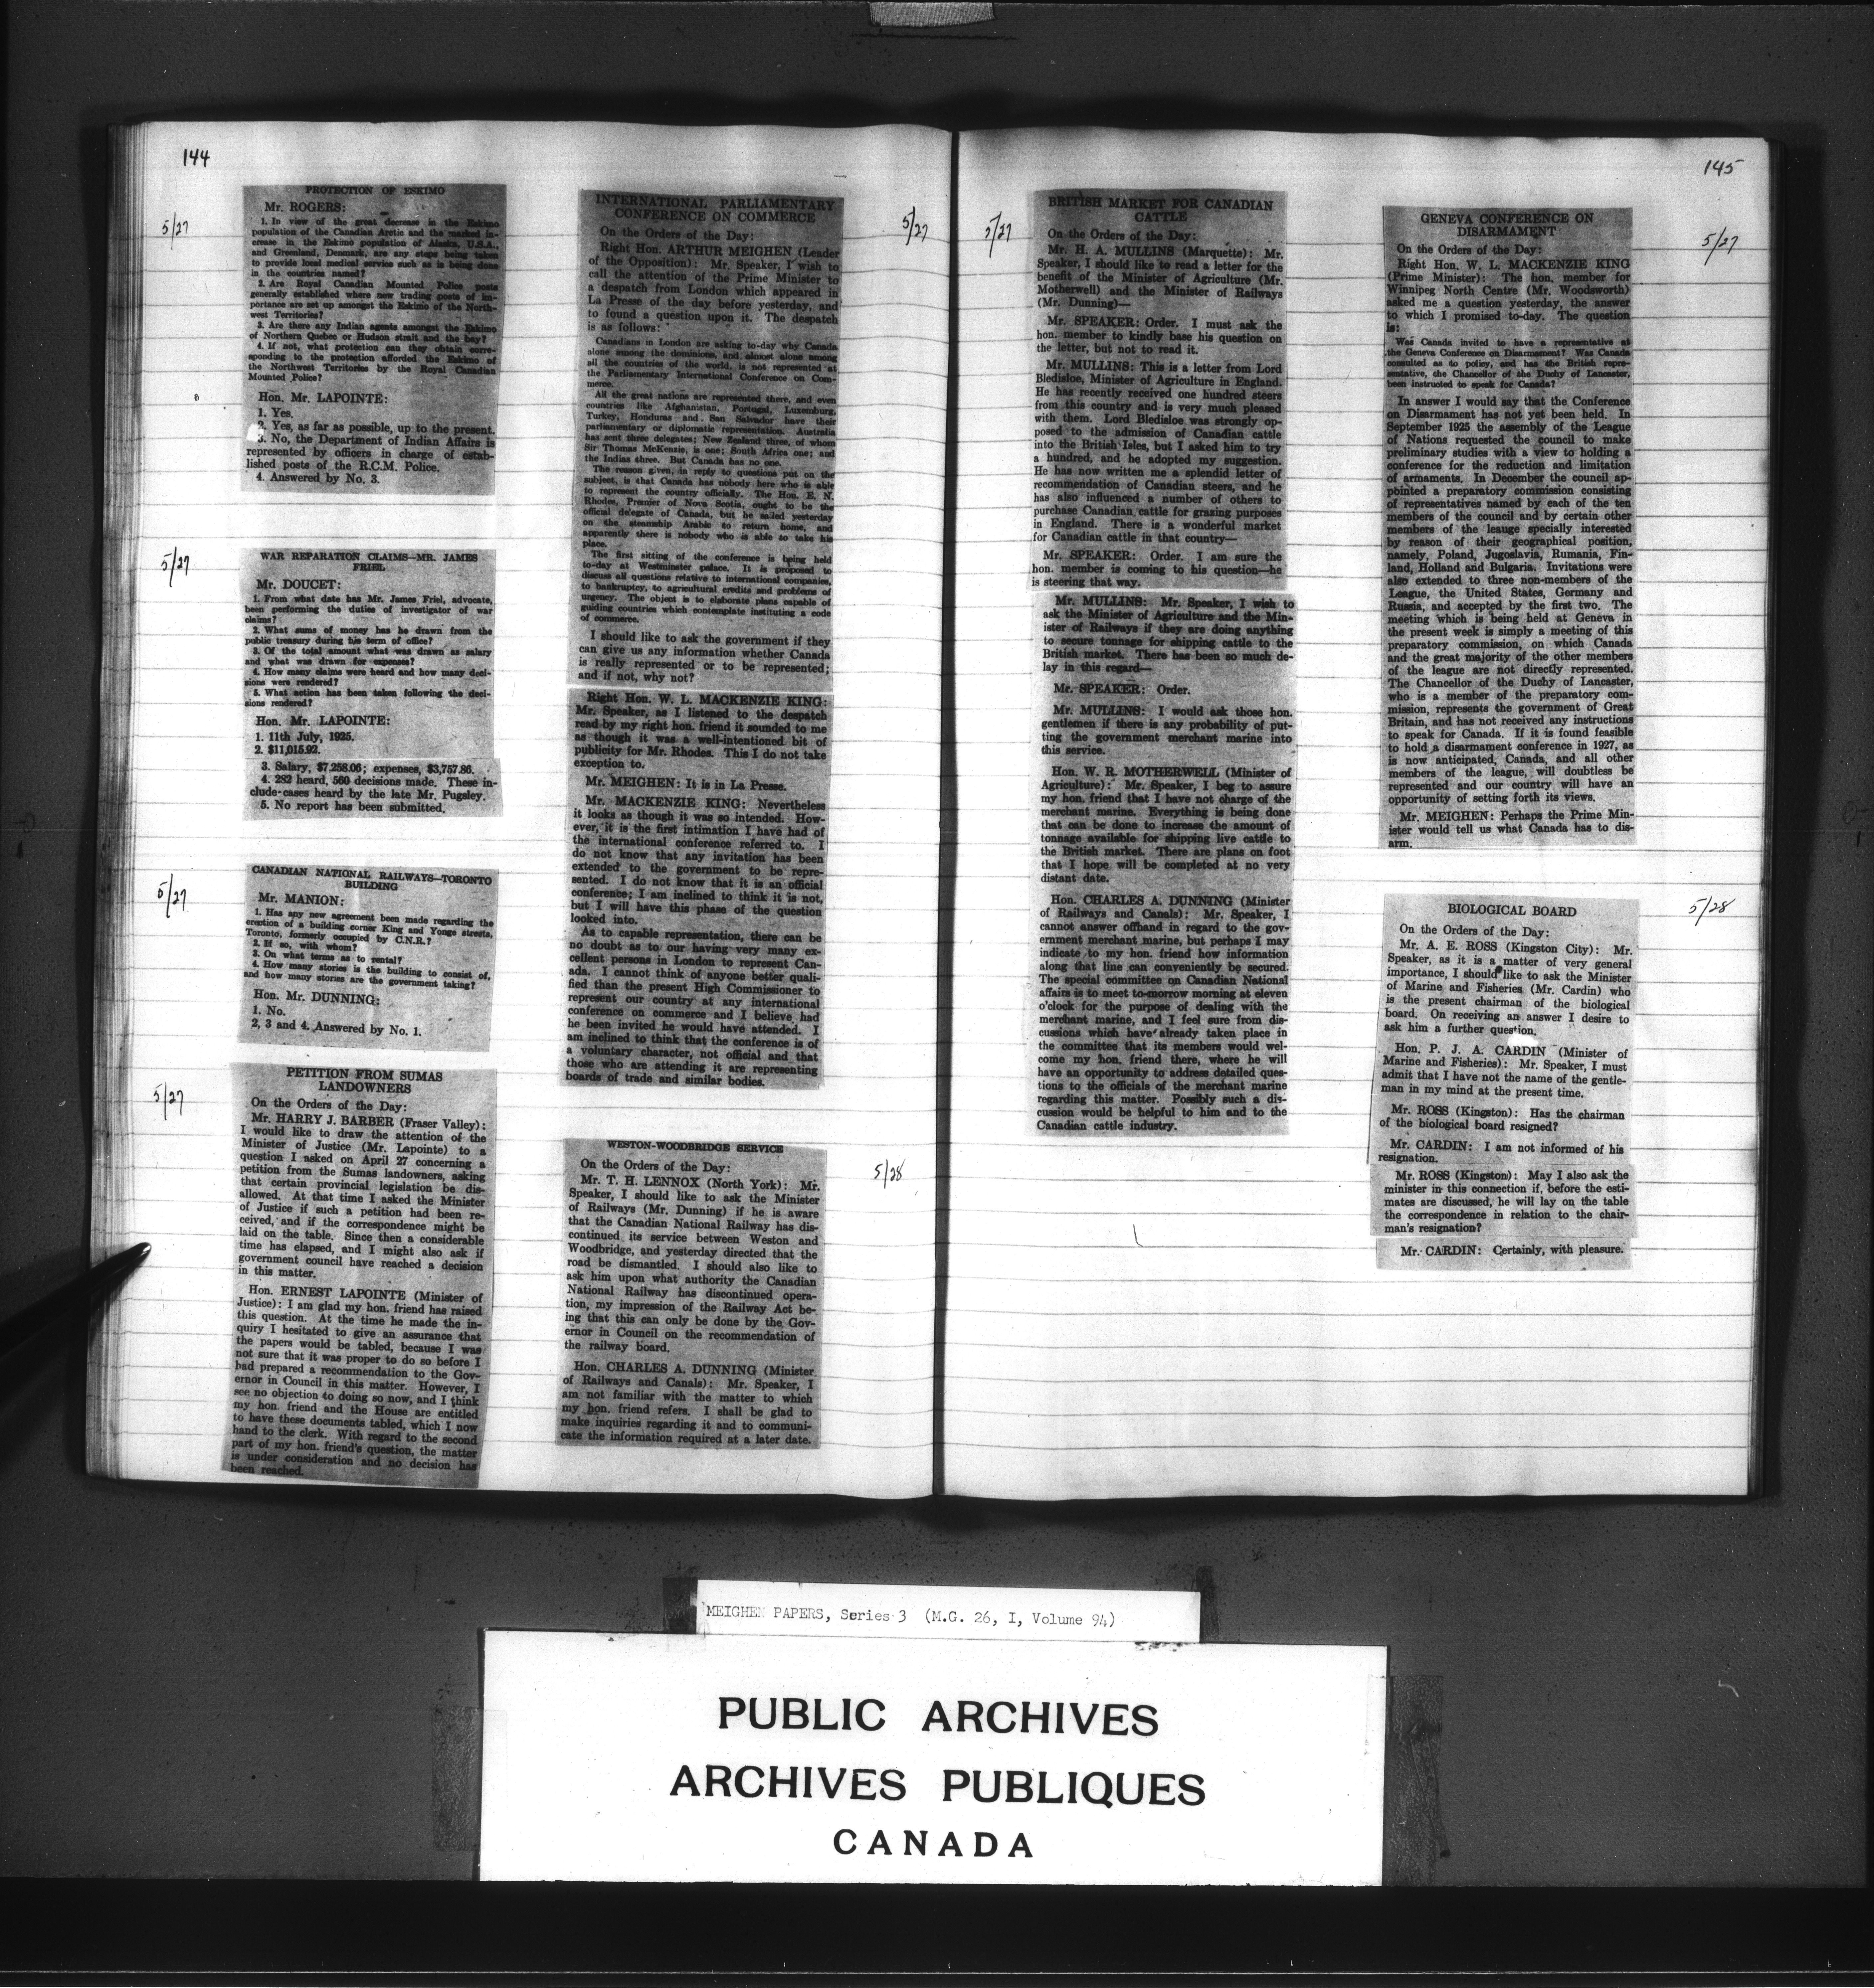 144
5/27
PROTECTION OF ESKIMO
Mr. ROGERS:
1. In view of the great decrease in the Eskimo
population of the Canadian Arctic and the marked in-
crease in the Eskimo population of Alaska, U.S.A.,
and Greenland, Denmark, are any steps being taken
to provide local medical service such as is being done
in the countries named?
2. Are Royal Canadian Mounted Police posts
generally established where new trading posts of im-
portance are set up amongst the Eskimo of the North-
west Territories?
3. Are there any Indian agents amongst the Eskimo
of Northern Quebec or Hudson strait and the bay?
4. If not, what protection can they obtain corre-
sponding to the protection afforded the Eskimo of
the Northwest Territories by the Royal Canadian
Mounted Police?
Hon. Mr. LAPOINTE:
1. Yes.
2. Yes, as far as possible, up to the present.
3. No, the Department of Indian Affairs is
represented by officers in charge of estab-
lished posts of the R.C.M. Police.
4. Answered by No. 3.
5/27
WAR REPARATION CLAIMS—MR. JAMES
FRIEL
Mr. DOUCET:
1. From what date has Mr. James Friel, advocate,
been performing the duties of investigator of war
claims?
2. What sums of money has he drawn from the
public treasury during his term of office?
3. Of the total amount what was drawn as salary
and what was drawn for expenses?
4. How many claims were heard and how many deci-
sions were rendered?
5. What action has been taken following the deci-
sions rendered?
Hon. Mr. LAPOINTE:
1. 11th July, 1925.
2. $11,015.92.
3. Salary, $7,258.06; expenses, $3,757.86.
4. 282 heard, 560 decisions made. These in-
clude cases heard by the late Mr. Pugsley.
5. No report has been submitted.
5/27
CANADIAN NATIONAL RAILWAYS—TORONTO
BUILDING
Mr. MANION:
1. Has any new agreement been made regarding the
erection of a building corner King and Yonge streets,
Toronto, formerly occupied by C.N.R.?
2. If so, with whom?
3. On what terms as to rental?
4. How many stories is the building to consist of,
and how many stories are the government taking?
Hon. Mr. DUNNING:
1. No.
2, 3 and 4. Answered by No. 1.
5/27
PETITION FROM SUMAS
LANDOWNERS
On the Orders of the Day:
Mr. HARRY J. BARBER (Fraser Valley):
I would like to draw the attention of the
Minister of Justice (Mr. Lapointe) to a
question I asked on April 27 concerning a
petition from the Sumas landowners, asking
that certain provincial legislation be dis-
allowed. At that time I asked the Minister
of Justice if such a petition had been re-
ceived, and if the correspondence might be
laid on the table. Since then a considerable
time has elapsed, and I might also ask if
government council have reached a decision
in this matter.
Hon. ERNEST LAPOINTE (Minister of
Justice): I am glad my hon. friend has raised
this question. At the time he made the in-
quiry I hesitated to give an assurance that
the papers would be tabled, because I was
not sure that it was proper to do so before I
had prepared a recommendation to the Gov-
ernor in Council in this matter. However, I
see no objection to doing so now, and I think
my hon. friend and the House are entitled
to have these documents tabled, which I now
hand to the clerk. With regard to the second
part of my hon. friend's question, the matter
is under consideration and no decision has
been reached.
5/27
INTERNATIONAL PARLIAMENTARY
CONFERENCE ON COMMERCE
On the Orders of the Day:
Right Hon. ARTHUR MEIGHEN (Leader
of the Opposition): Mr. Speaker, I wish to
call the attention of the Prime Minister to
a despatch from London which appeared in
La Presse of the day before yesterday, and
to found a question upon it. The despatch
is as follows:
Canadians in London are asking to-day why Canada
alone among the dominions, and almost alone among
all the countries of the world, is not represented at
the Parliamentary International Conference on Com-
merce.
All the great nations are represented there, and even
countries like Afghanistan, Portugal, Luxemburg,
Turkey, Honduras and San Salvador have their
parliamentary or diplomatic representation. Australia
has sent three delegates; New Zealand three, of whom
Sir Thomas McKenzie, is one; South Africa one; and
the Indias three. But Canada has no one.
The reason given, in reply to questions put on the
subject, is that Canada has nobody here who is able
to represent the country officially. The Hon. E. N.
Rhodes, Premier of Nova Scotia, ought to be the
official delegate of Canada, but he sailed yesterday
on the steamship Arabic to return home, and
apparently there is nobody who is able to take his
place.
The first sitting of the conference is being held
to-day at Westminster palace. It is proposed to
discuss all questions relative to international companies,
to bankruptcy, to agricultural credits and problems of
urgency. The object is to elaborate plans capable of
guiding countries which contemplate instituting a code
of commerce.
I should like to ask the government if they
can give us any information whether Canada
is really represented or to be represented;
and if not, why not?
Right Hon. W. L. MACKENZIE KING:
Mr. Speaker, as I listened to the despatch
read by my right hon. friend it sounded to me
as though it was a well-intentioned bit of
publicity for Mr. Rhodes. This I do not take
exception to.
Mr. MEIGHEN: It is in La Presse.
Mr. MACKENZIE KING: Nevertheless
it looks as though it was so intended. How-
ever, it is the first intimation I have had of
the international conference referred to. I
do not know that any invitation has been
extended to the government to be repre-
sented. I do not know that it is an official
conference; I am inclined to think it is not,
but I will have this phase of the question
looked into.
As to capable representation, there can be
no doubt as to our having very many ex-
cellent persons in London to represent Can-
ada. I cannot think of anyone better quali-
fied than the present High Commissioner to
represent our country at any international
conference on commerce and I believe had
he been invited he would have attended. I
am inclined to think that the conference is of
a voluntary character, not official and that
those who are attending it are representing
boards of trade and similar bodies.
5/28
WESTON-WOODBRIDGE SERVICE
On the Orders of the Day:
Mr. T. H. LENNOX (North York): Mr.
Speaker, I should like to ask the Minister
of Railways (Mr. Dunning) if he is aware
that the Canadian National Railway has dis-
continued its service between Weston and
Woodbridge, and yesterday directed that the
road be dismantled. I should also like to
ask him upon what authority the Canadian
National Railway has discontinued opera-
tion, my impression of the Railway Act be-
ing that this can only be done by the Gov-
ernor in Council on the recommendation of
the railway board.
Hon. CHARLES A. DUNNING (Minister
of Railways and Canals): Mr. Speaker, I
am not familiar with the matter to which
my hon. friend refers. I shall be glad to
make inquiries regarding it and to communi-
cate the information required at a later date.
145
5/27
BRITISH MARKET FOR CANADIAN
CATTLE
On the Orders of the Day:
Mr. H. A. MULLINS (Marquette): Mr.
Speaker, I should like to read a letter for the
benefit of the Minister of Agriculture (Mr.
Motherwell) and the Minister of Railways
(Mr. Dunning)—
Mr. SPEAKER: Order. I must ask the
hon. member to kindly base his question on
the letter, but not to read it.
Mr. MULLINS: This is a letter from Lord
Bledisloe, Minister of Agriculture in England.
He has recently received one hundred steers
from this country and is very much pleased
with them. Lord Bledisloe was strongly op-
posed to the admission of Canadian cattle
into the British Isles, but I asked him to try
a hundred, and he adopted my suggestion.
He has now written me a splendid letter of
recommendation of Canadian steers, and he
has also influenced a number of others to
purchase Canadian cattle for grazing purposes
in England. There is a wonderful market
for Canadian cattle in that country—
Mr. SPEAKER: Order. I am sure the
hon. member is coming to his question—he
is steering that way.
Mr. MULLINS: Mr. Speaker, I wish to
ask the Minister of Agriculture and the Min-
ister of Railways if they are doing anything
to secure tonnage for shipping cattle to the
British market. There has been so much de-
lay in this regard—
Mr. SPEAKER: Order.
Mr. MULLINS: I would ask those hon.
gentlemen if there is any probability of put-
ting the government merchant marine into
this service.
Hon. W. R. MOTHERWELL (Minister of
Agriculture): Mr. Speaker, I beg to assure
my hon. friend that I have not charge of the
merchant marine. Everything is being done
that can be done to increase the amount of
tonnage available for shipping live cattle to
the British market. There are plans on foot
that I hope will be completed at no very
distant date.
Hon. CHARLES A. DUNNING (Minister
of Railways and Canals): Mr. Speaker, I
cannot answer offhand in regard to the gov-
ernment merchant marine, but perhaps I may
indicate to my hon. friend how information
along that line can conveniently be secured.
The special committee on Canadian National
affairs is to meet to-morrow morning at eleven
o'clock for the purpose of dealing with the
merchant marine, and I feel sure from dis-
cussions which have already taken place in
the committee that its members would wel-
come my hon. friend there, where he will
have an opportunity to address detailed ques-
tions to the officials of the merchant marine
regarding this matter. Possibly such a dis-
cussion would be helpful to him and to the
Canadian cattle industry.
5/27
GENEVA CONFERENCE ON
DISARMAMENT
On the Orders of the Day:
Right Hon. W. L. MACKENZIE KING
(Prime Minister): The hon. member for
Winnipeg North Centre (Mr. Woodsworth)
asked me a question yesterday, the answer
to which I promised to-day. The question
is:
Was Canada invited to have a representative at
the Geneva Conference on Disarmament? Was Canada
consulted as to policy, and has the British repre-
sentative, the Chancellor of the Duchy of Lancaster,
been instructed to speak for Canada?
In answer I would say that the Conference
on Disarmament has not yet been held. In
September 1925 the assembly of the League
of Nations requested the council to make
preliminary studies with a view to holding a
conference for the reduction and limitation
of armaments. In December the council ap-
pointed a preparatory commission consisting
of representatives named by each of the ten
members of the council and by certain other
members of the leauge specially interested
by reason of their geographical position,
namely, Poland, Jugoslavia, Rumania, Fin-
land, Holland and Bulgaria. Invitations were
also extended to three non-members of the
League, the United States, Germany and
Russia, and accepted by the first two. The
meeting which is being held at Geneva in
the present week is simply a meeting of this
preparatory commission, on which Canada
and the great majority of the other members
of the league are not directly represented.
The Chancellor of the Duchy of Lancaster,
who is a member of the preparatory com-
mission, represents the government of Great
Britain, and has not received any instructions
to speak for Canada. If it is found feasible
to hold a disarmament conference in 1927, as
is now anticipated, Canada, and all other
members of the league, will doubtless be
represented and our country will have an
opportunity of setting forth its views.
Mr. MEIGHEN: Perhaps the Prime Min-
ister would tell us what Canada has to dis-
arm.
5/28
BIOLOGICAL BOARD
On the Orders of the Day:
Mr. A. E. ROSS (Kingston City): Mr.
Speaker, as it is a matter of very general
importance, I should like to ask the Minister
of Marine and Fisheries (Mr. Cardin) who
is the present chairman of the biological
board. On receiving an answer I desire to
ask him a further question.
Hon. P. J. A. CARDIN (Minister of
Marine and Fisheries): Mr. Speaker, I must
admit that I have not the name of the gentle-
man in my mind at the present time.
Mr. ROSS (Kingston): Has the chairman
of the biological board resigned?
Mr. CARDIN: I am not informed of his
resignation.
Mr. ROSS (Kingston): May I also ask the
minister in this connection if, before the esti-
mates are discussed, he will lay on the table
the correspondence in relation to the chair-
man's resignation?
Mr. CARDIN: Certainly, with pleasure.
MEIGHEN PAPERS, Series 3 (M.G. 26, I, Volume 94)
PUBLIC ARCHIVES
ARCHIVES PUBLIQUES
CANADA